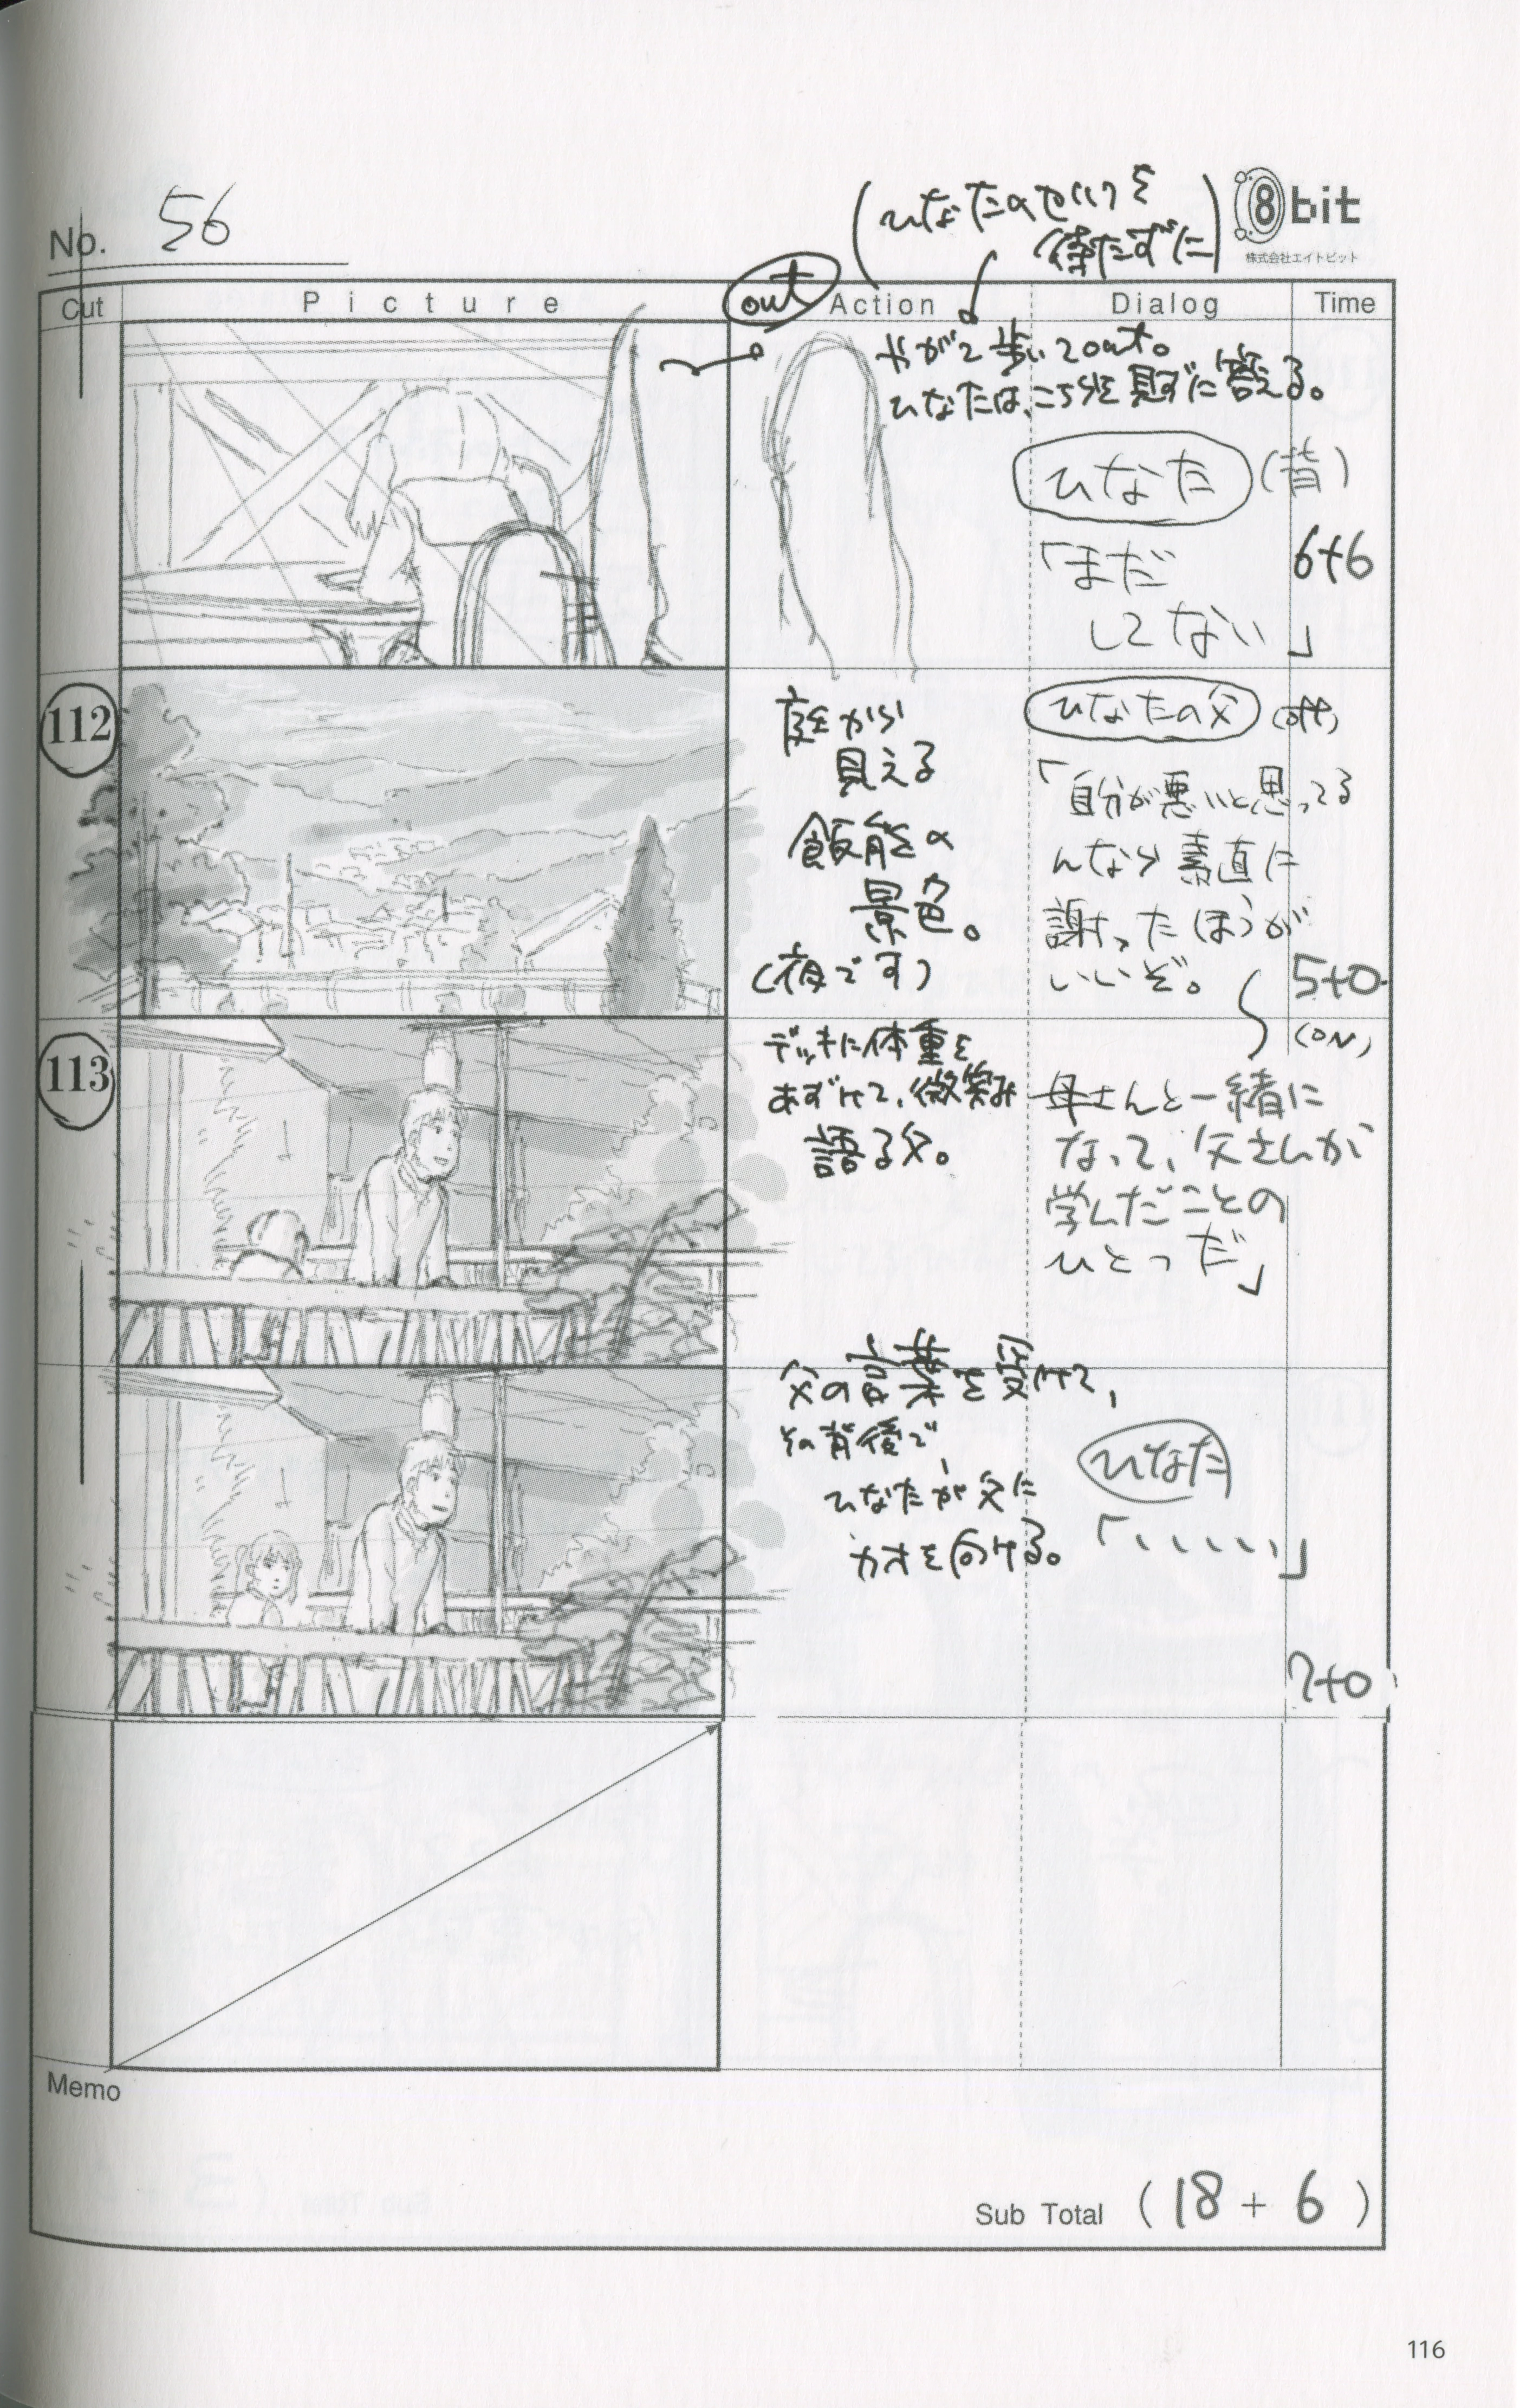 No. 56
8bit
株式会社エイトビット
Cut
Picture
Action
Dialog
Time
(ひなたのセリフを
待たずに)
out
やがて歩いてout。
ひなたは、こちらを見ずに答える。
ひなた (背)
「まだ
してない」
6+6
112
庭から
見える
飯能の
景色。
(夜です)
ひなたの父 (off)
「自分が悪いと思ってる
んなら素直に
謝ったほうが
いいぞ。
5+0
113
デッキに体重を
あずけて、微笑み
語る父。
(ON)
母さんと一緒に
なって、父さんが
学んだことの
ひとつだ」
父の言葉を受けて、
その背後で、
ひなたが父に
カオを向ける。
ひなた
「、、、、、」
7+0
Memo
Sub Total (18+6)
116